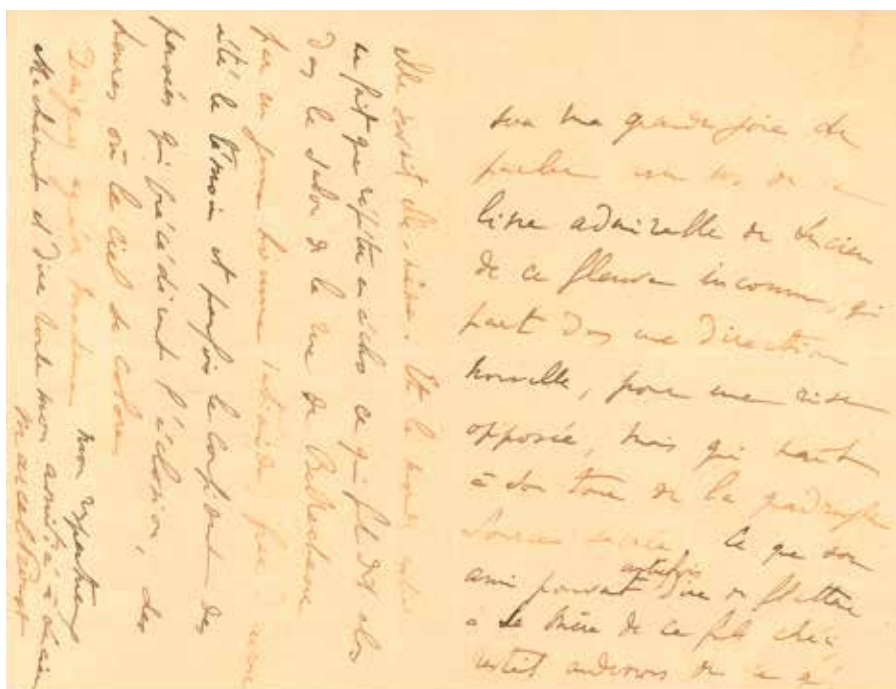 sera ma grande joie de
parler un jour de ce
livre admirable de Lucien
de ce fleuve inconnu, qui
part dans une direction
nouvelle, pour une rive
opposée, mais qui naît
à son tour de la
source sacrée. Ce que son
ami pouvait autrefois dire de flatteur
à la Mère de ce fils chéri
restait au-dessous de ce qu'
elle savait elle-même. Et le monde entier
ne fait que répéter en écho ce qui fut dit alors
dans le salon de la rue de
par un jeune homme
été le témoin et parfois le confident des
pensées qui précédaient l'éclosion, des
heures où le ciel se colore
Daignez agréer Madame mon respectueux
et dire toute mon amitié à Lucien
Marcel Proust